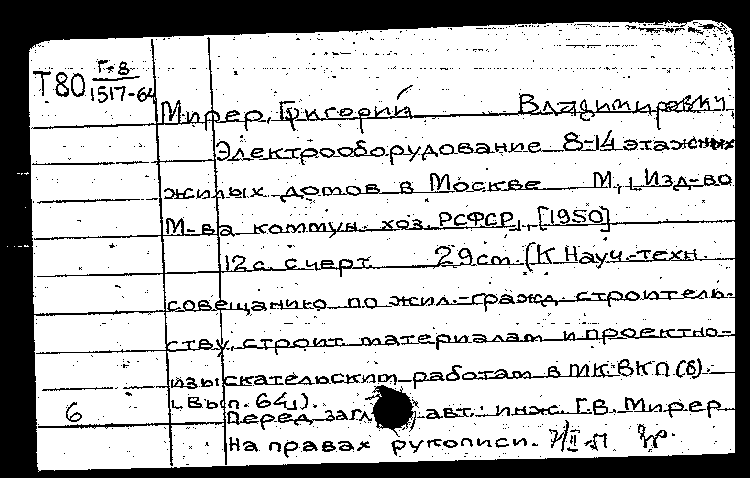 Т80 Г-8
1517-64
Мирер, Григорий Владимирович
Электрооборудование 8-14 этажных
жилых домов в Москве М., Изд-во
М-ва коммун. хоз. РСФСР, [1950]
12 с. с черт. 29 cm. (К Науч.-техн.
совещанию по жил.-гражд. строитель-
ству, строит. материалам и проектно-
изыскательским работам в МК ВКП(б).
Вып. 64).
6
Перед загл. авт.: инж. Г.В. Мирер
На правах рукописи.